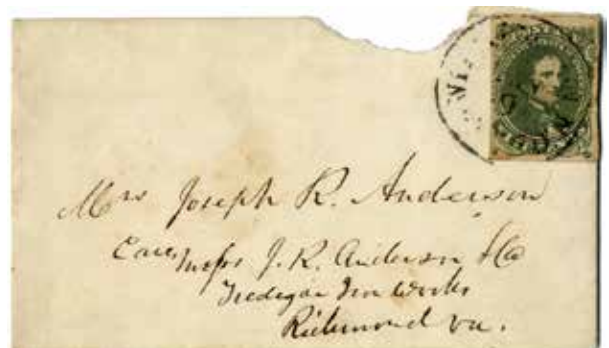 Mrs Joseph R. Anderson
Care Messrs J. R. Anderson & Co
Tredegar Iron Works
Richmond Va.